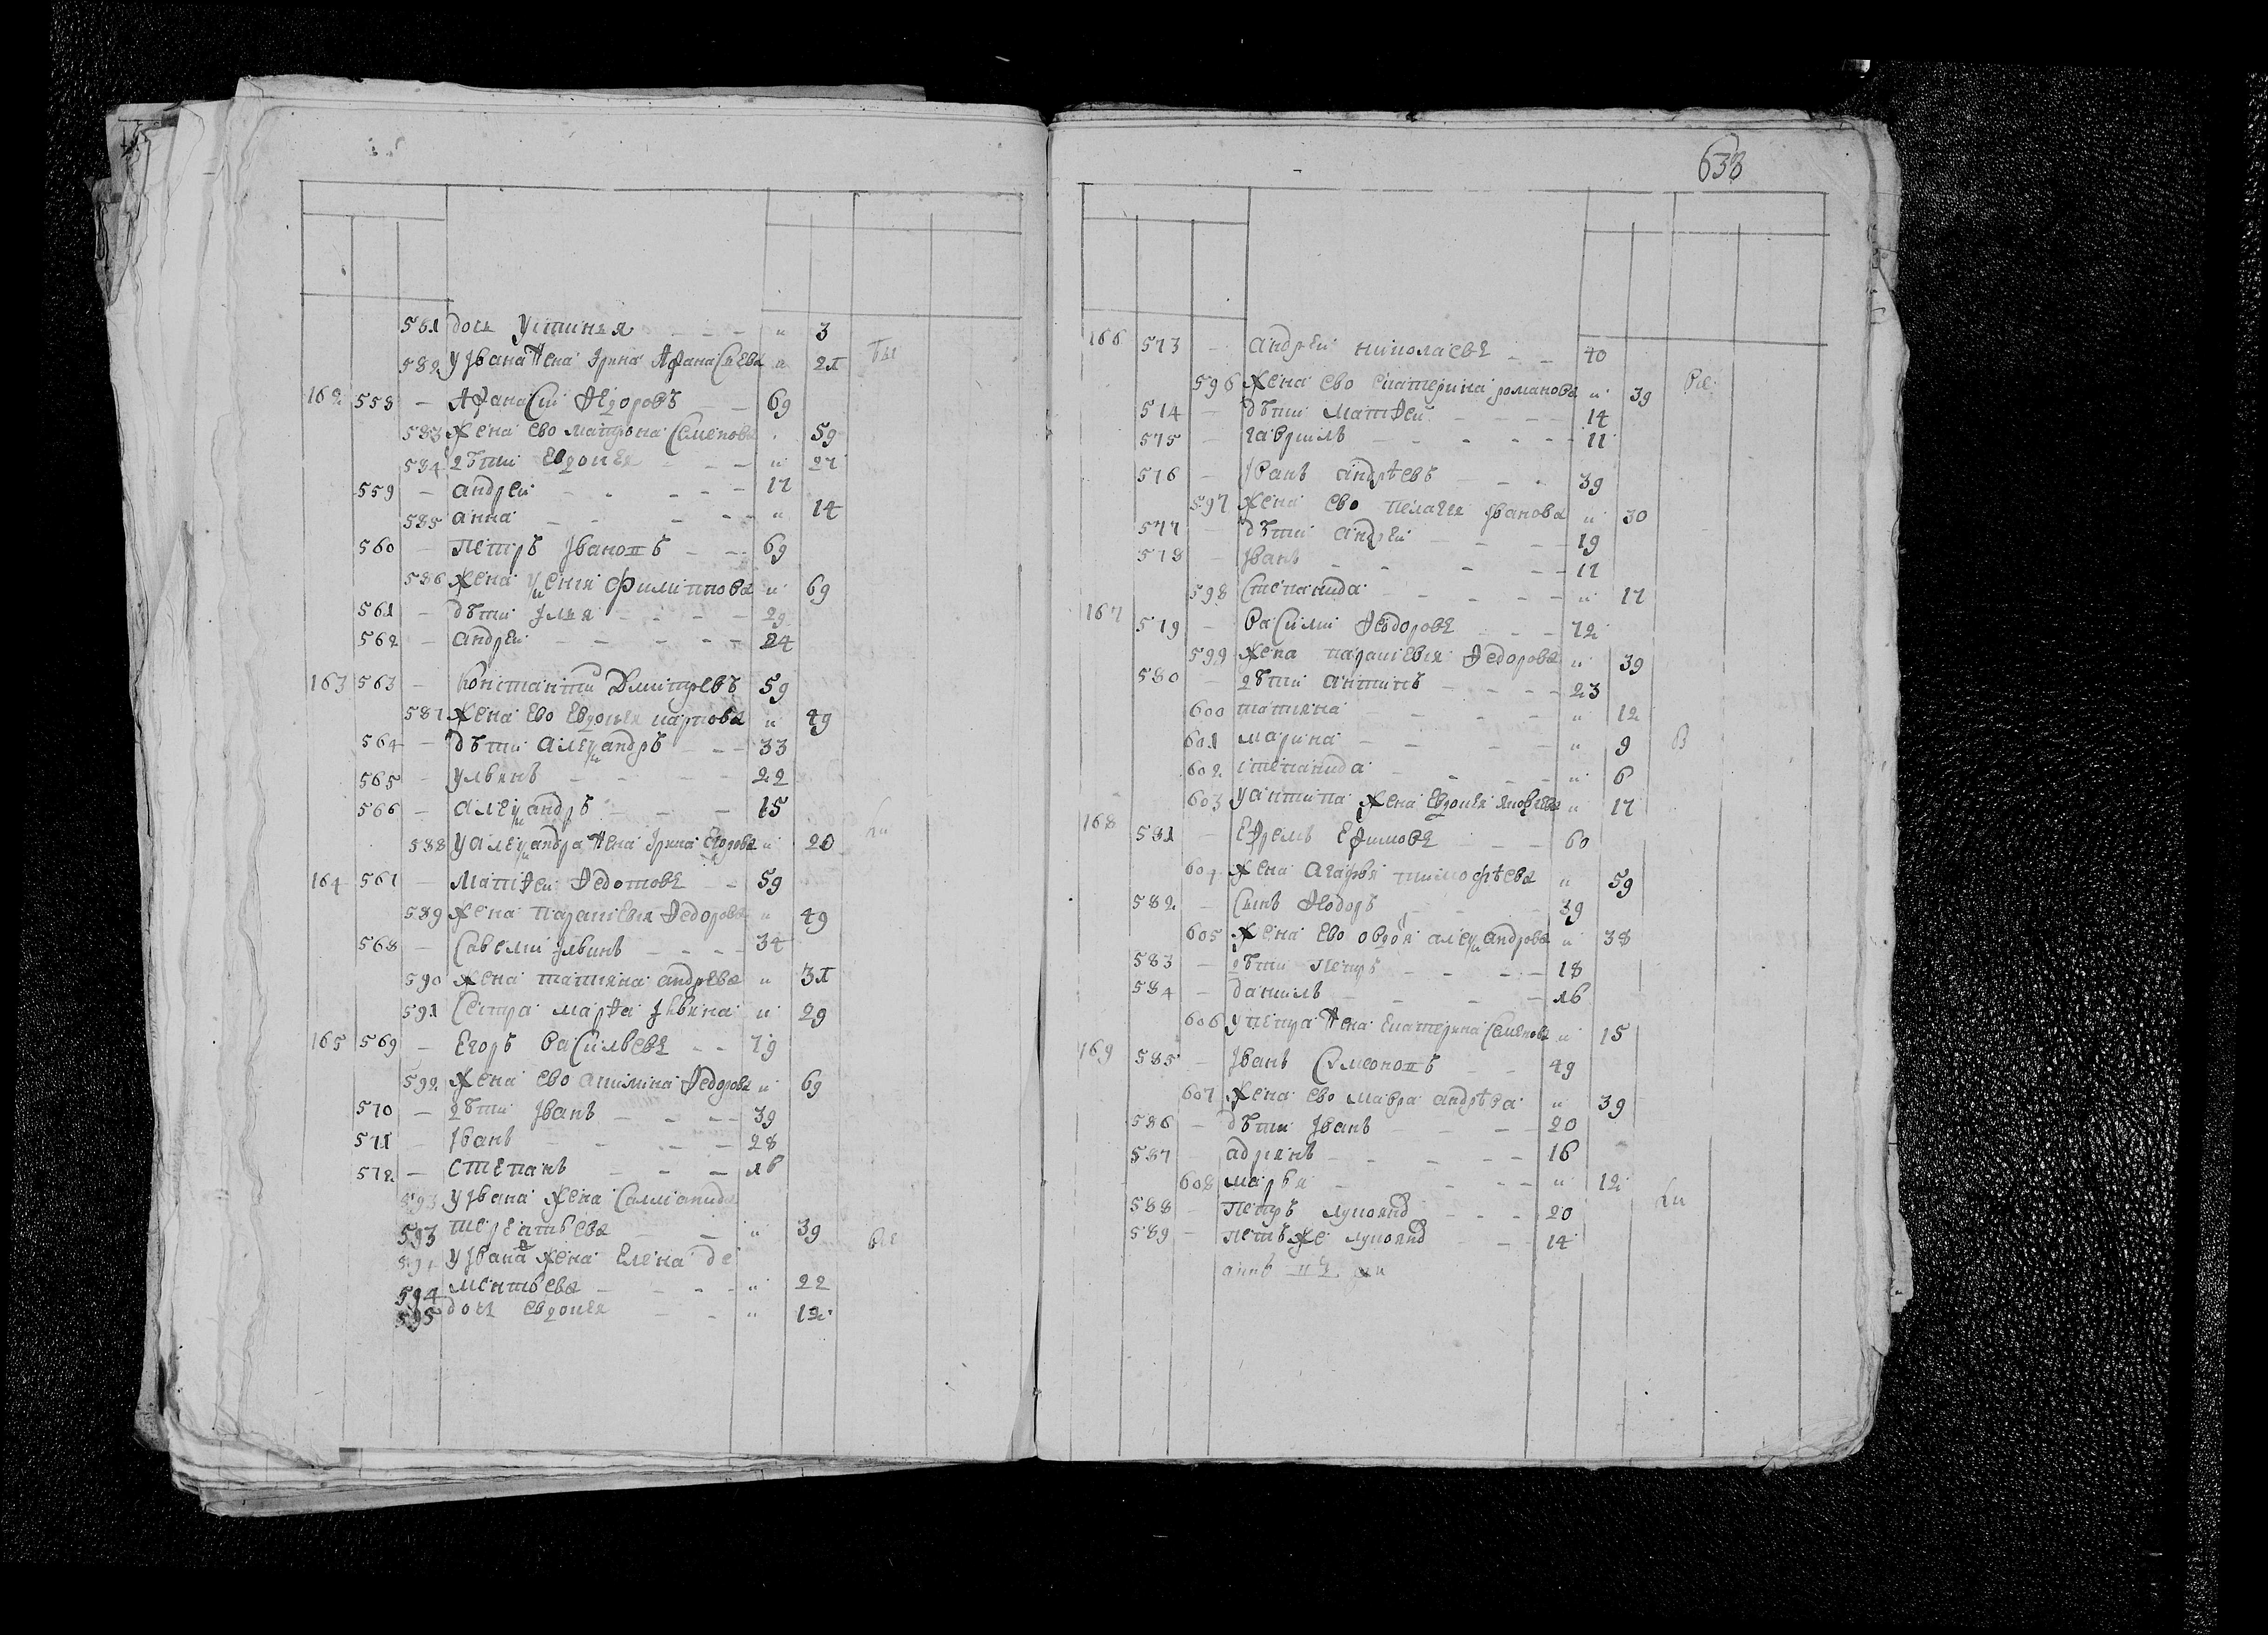 561 дочь Устинья - - - " 3
582 У Jвана жена Jрина Афанасиева " 21 бы
162 558 - Афанасiй Ѳедоровъ - 69
583 Жена ево матрона Семенова " 59
584 дѣти Евдокея - - - " 27
559 - андреи - - - - 17
585 анна - - - - " 14
560 - Петръ Jвановъ - - - 69
586 жена ѯения филиппова " 69
561 - дѣти Jлья - - - 29
562 - андреи - - - - 24
163 563 - Константи Дмитревъ 59
587 жена Ево Евдокея карпова " 49
564 - дѣти алеѯандръ - - - 33
565 - ульянъ - - - - 22
566 - алеѯандръ - - - 15
588 У алеѯандра жена Jрина егорова " 20
164 567 - Матѳеи Ѳедотовъ - 59
589 жена параскевья Ѳедорова " 49
568 - Савелiи Jльинъ - - - 34
590 жена татияна андрева " 31
591 Сестра марѳа Jльина " 29
165 569 - Егоръ Васильевъ - - 79
592 жена ево акилина Ѳедорова " 69
570 - дѣти Jванъ - - - 39
571 - Jванъ - - - 28
572 - степанъ - - - 16
593 У Jвана жена Саломанида
593 терентьева - - " 39
594 У Jвана жена Елена де
594 ментьева - - - - " 22 ве
595 дочь евдокея - - " 12
638
166 573 - андреи николаевъ - - 40
596 жена ево екатерина романова " 39 ве
574 - дѣти матѳеи - - - 14
575 - гаврилъ - - - - 11
576 - Jванъ андрѣевъ - - - 39
597 жена ево пелагея Jванова " 30
577 - дѣти андреи - - - 19
578 - Jванъ - - - - 17
598 степанида - - - - " 17
167 579 - Василiи Ѳеодоровъ - - 72
599 жена параскевья Ѳедорова " 39
580 - дѣти антипъ - - - - 23
600 татияна - - - - " 12
601 марина - - - - " 9 в
602 степанида - - - - " 6
603 У антипа жена Евдокея яковлева " 17
168 581 - Ефремъ Ефимовъ - - 60
604 жена агафья тимофѣева " 59
582 - Сынъ Ѳеодоръ - - - 39
605 жена ево овдоя алеѯандрова " 38
583 - дѣти Петръ - - - - 18
584 - данилъ - - - 16
606 У петра жена екатерина Семенова " 15
169 585 - Jванъ Симеоновъ - - 49
607 жена ево мавра андрѣва " 39
586 - дѣти Jванъ - - - 20
587 адриянъ - - - - 16
608 марья - - - - " 12
588 - Петръ лукоянд - - - 20
589 - петъ же лукоянд - - 14